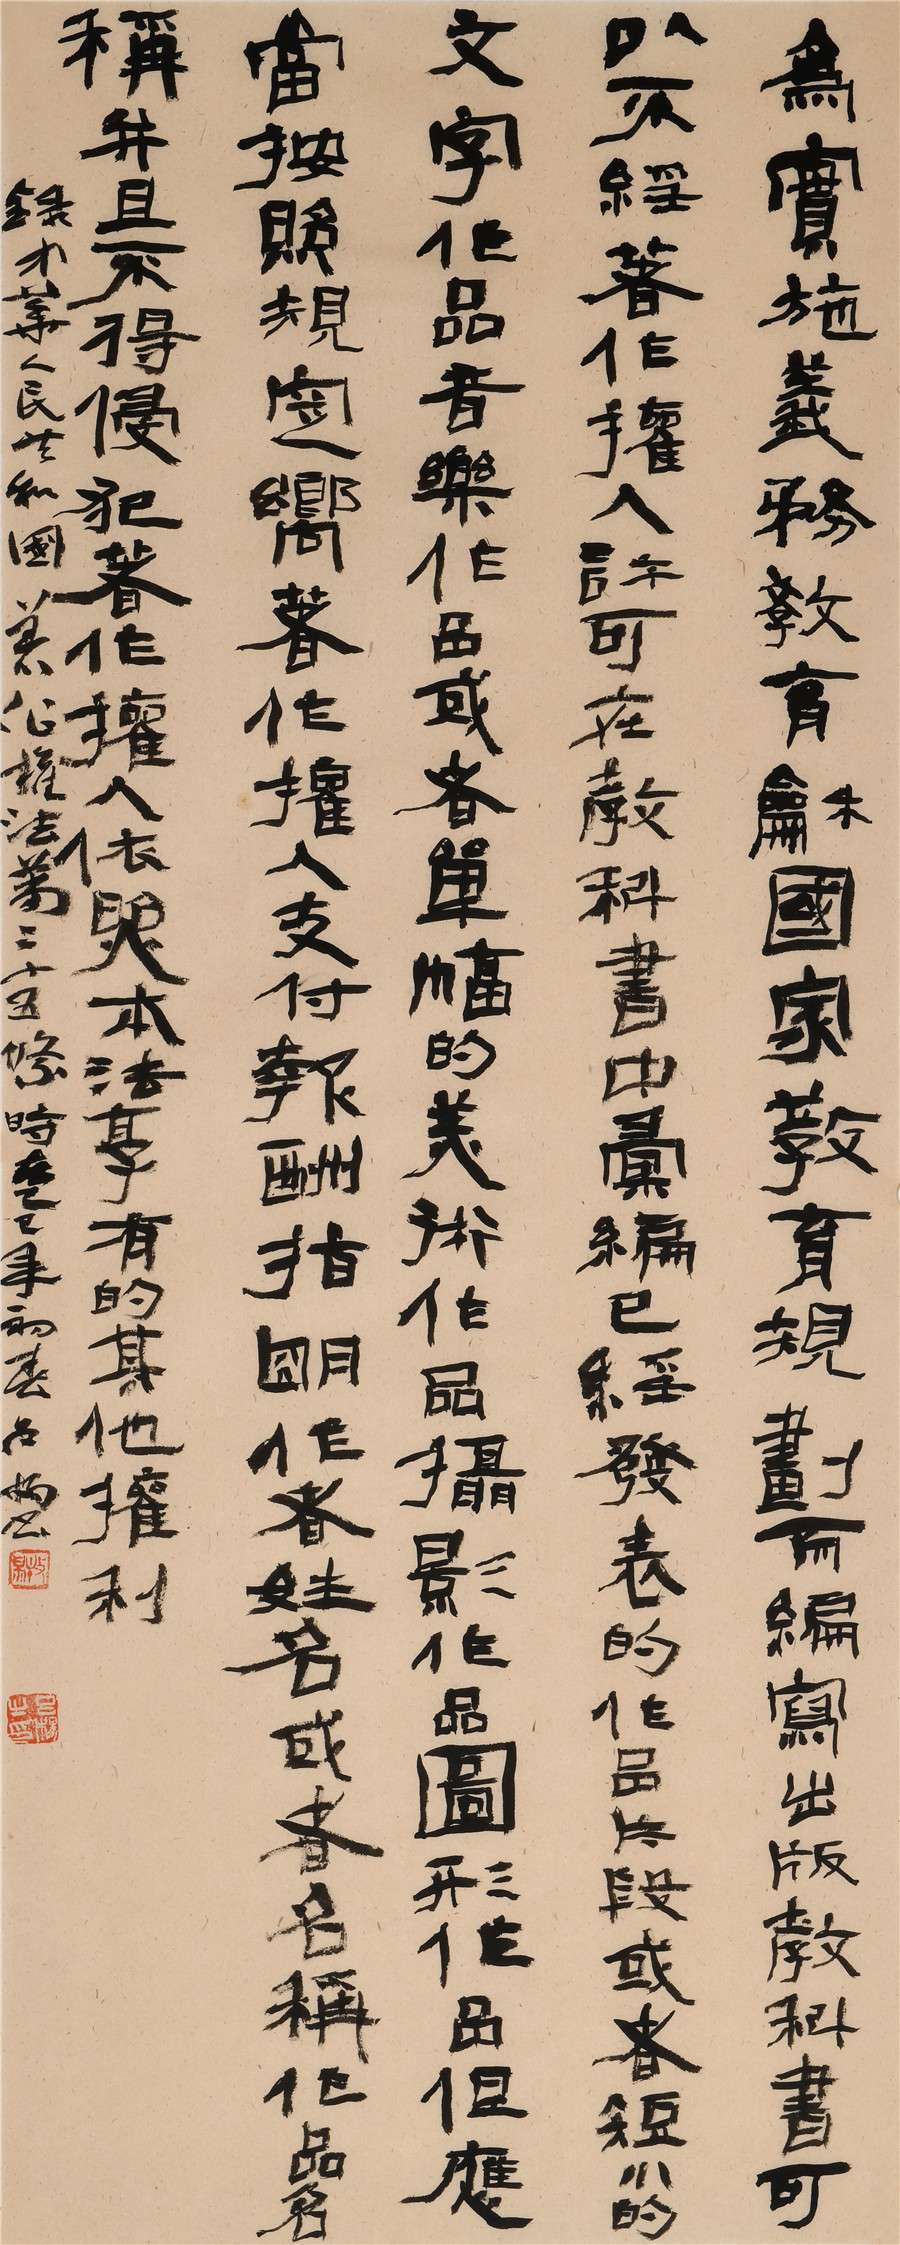 為實施義務教育龢國家教育規劃而編寫出版教科書可
以不經著作權人許可在教科書中彙編已經發表的作品片段或者短小的
文字作品音樂作品或者單幅的美術作品攝影作品圖形作品但應
當按照規定嚮著作權人支付報酬指明作者姓名或者名稱作品名
稱并且不得侵犯著作權人依照本法享有的其他權利
錄中華人民共和國著作權法第二十五條時乙巳年初春呂